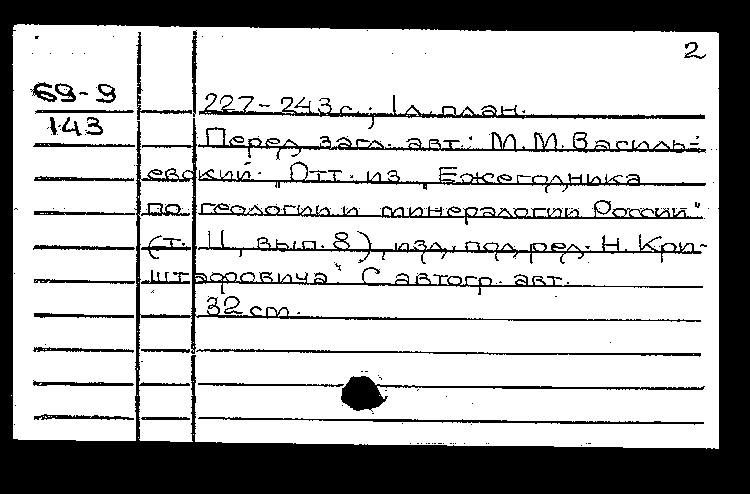 2
69-9
143
227-243 с.; 1 л. план.
Перед загл. авт.: М.М. Василь-
евский. „Отт. из „Ежегодника
по геологии и минералогии России"
(т. II, вып. 8), изд. под ред. Н. Кри-
штафовича" С автогр. авт.
32 cm.